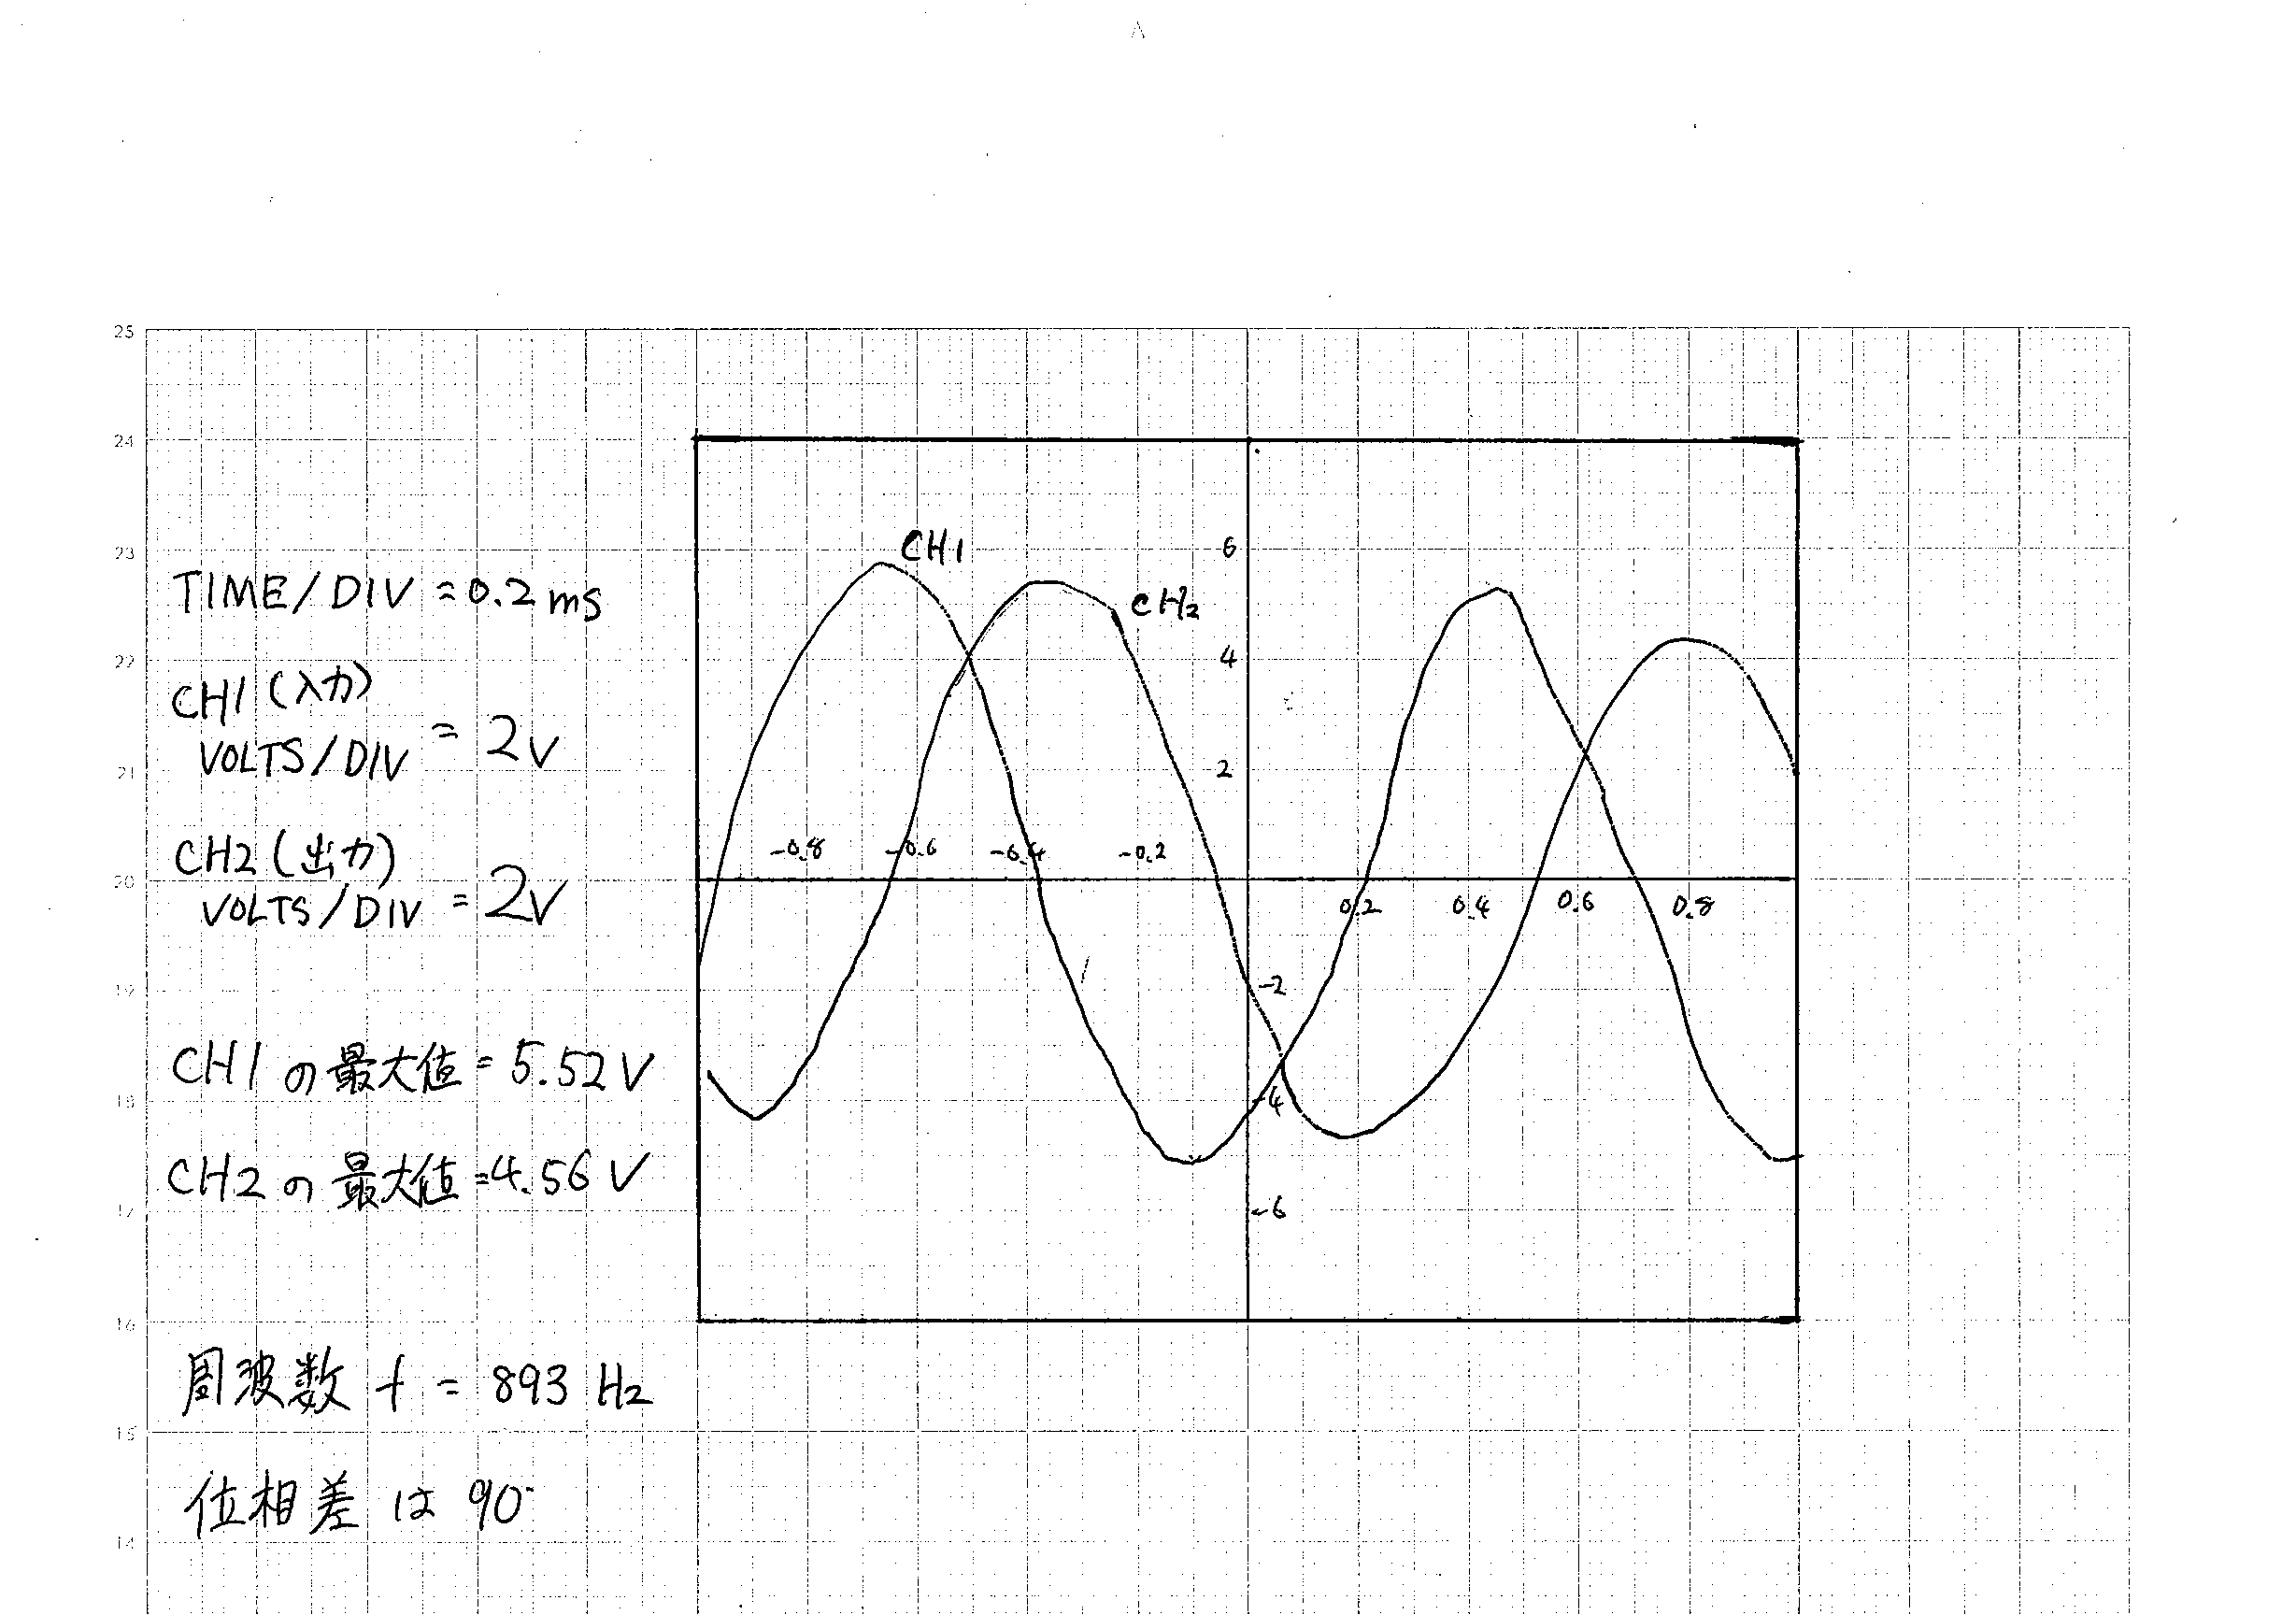 25
24
23
22
21
20
19
18
17
16
15
14
TIME/DIV = 0.2 ms
CH1 (入力)
VOLTS/DIV = 2V
CH2 (出力)
VOLTS/DIV = 2V
CH1 の最大値 = 5.52 V
CH2 の最大値 = 4.56 V
周波数 f = 893 Hz
位相差は 90°
CH1
CH2
6
4
2
-0.8 -0.6 -0.4 -0.2
0.2 0.4 0.6 0.8
-2
-4
-6